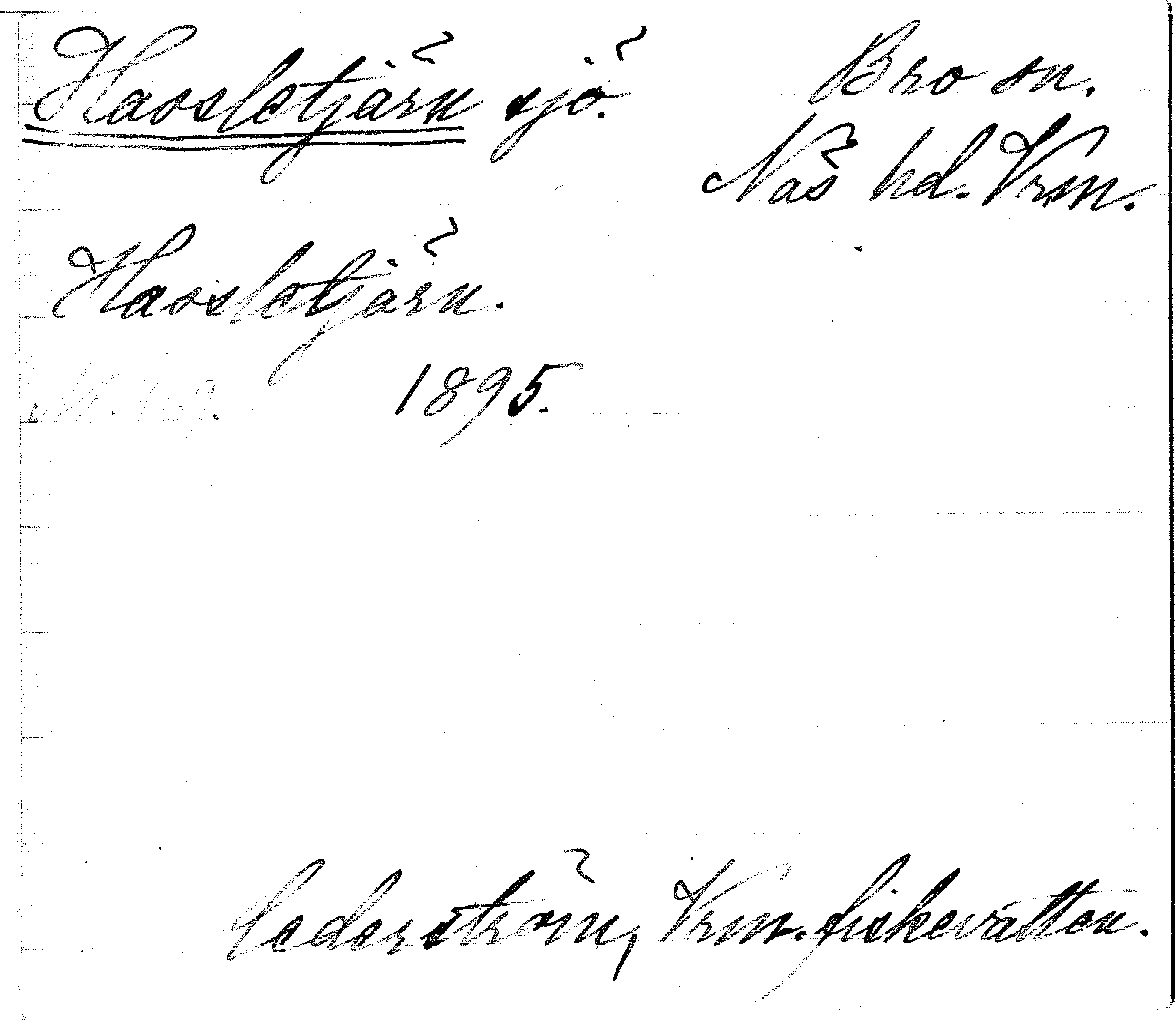 Haosletjärn sjö.
Bro sn.
Näs hd. Vrm.
Haosletjärn.
1895.
Cederström, Vrm. fiskevatten.